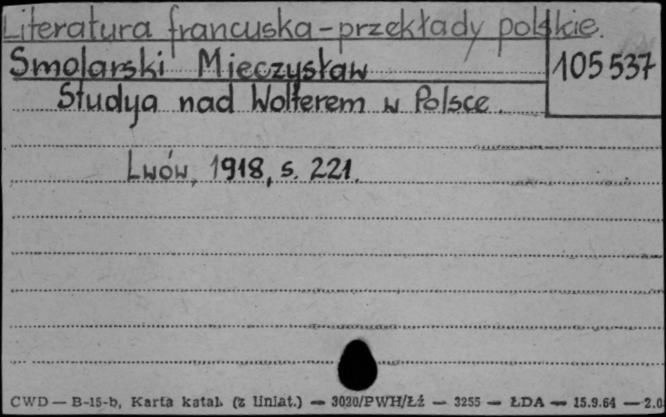 Literatura francuska - przekłady polskie.
Smolarski Mieczysław
105537
Studya nad Wolterem w Polsce.
Lwów, 1918, s. 221.
CWD — B-15-b, Karta katal. (z liniat.) — 3030/PWH/Łź — 3255 — ŁDA — 15.9.64 — 2.0